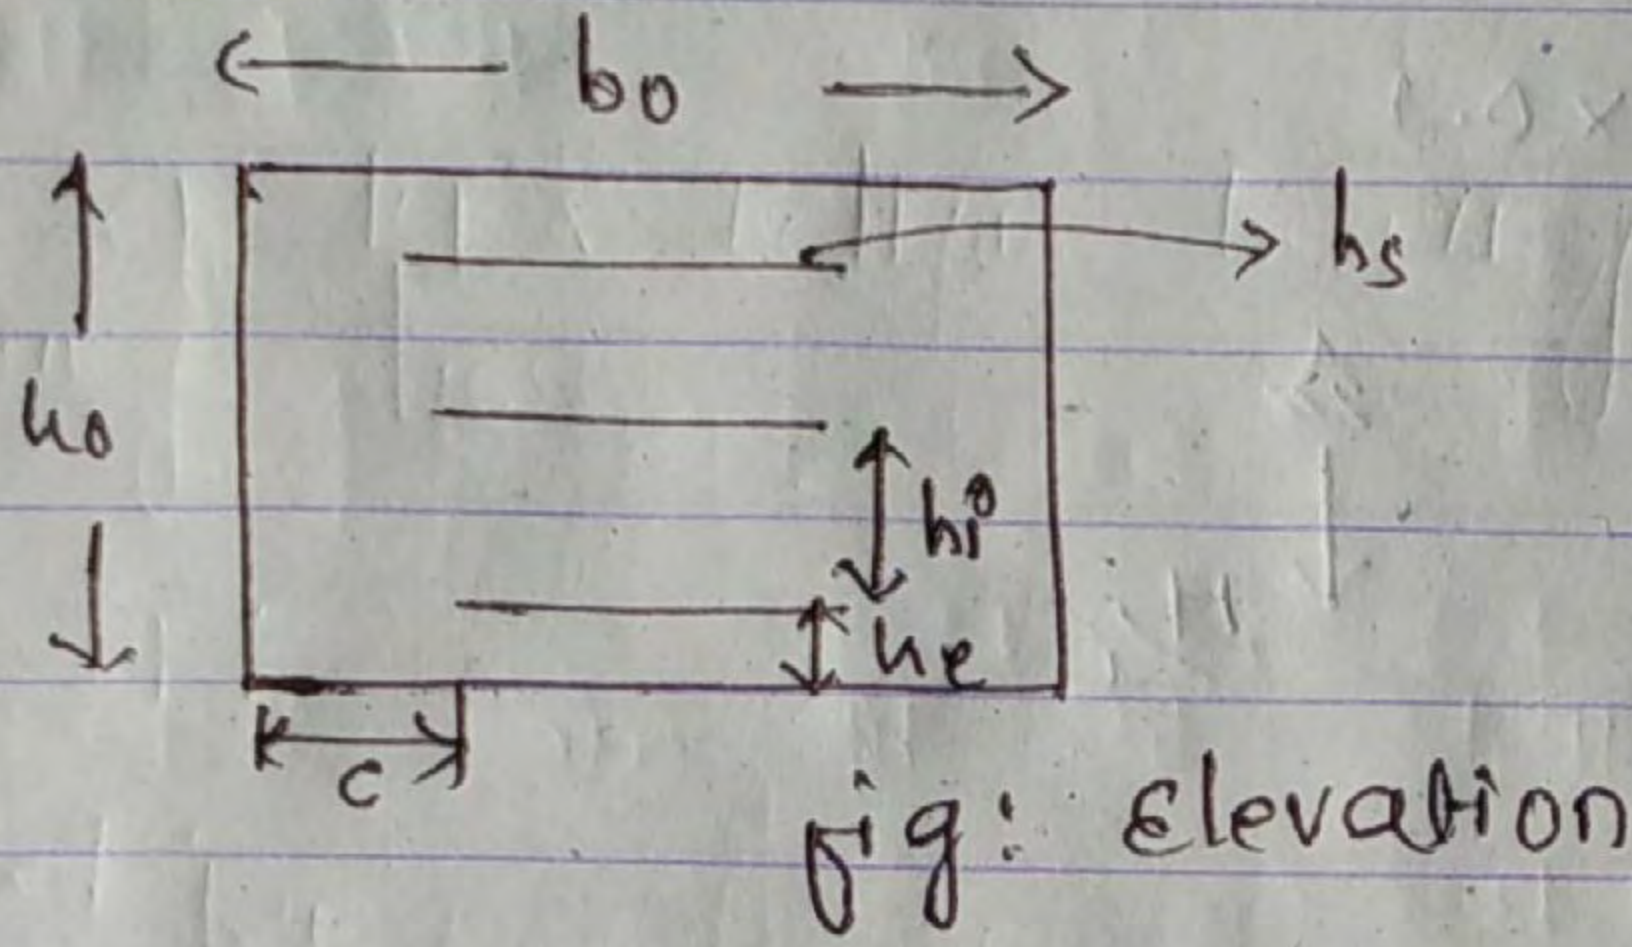 bo
hs
ho
hi
he
c
fig: Elevation